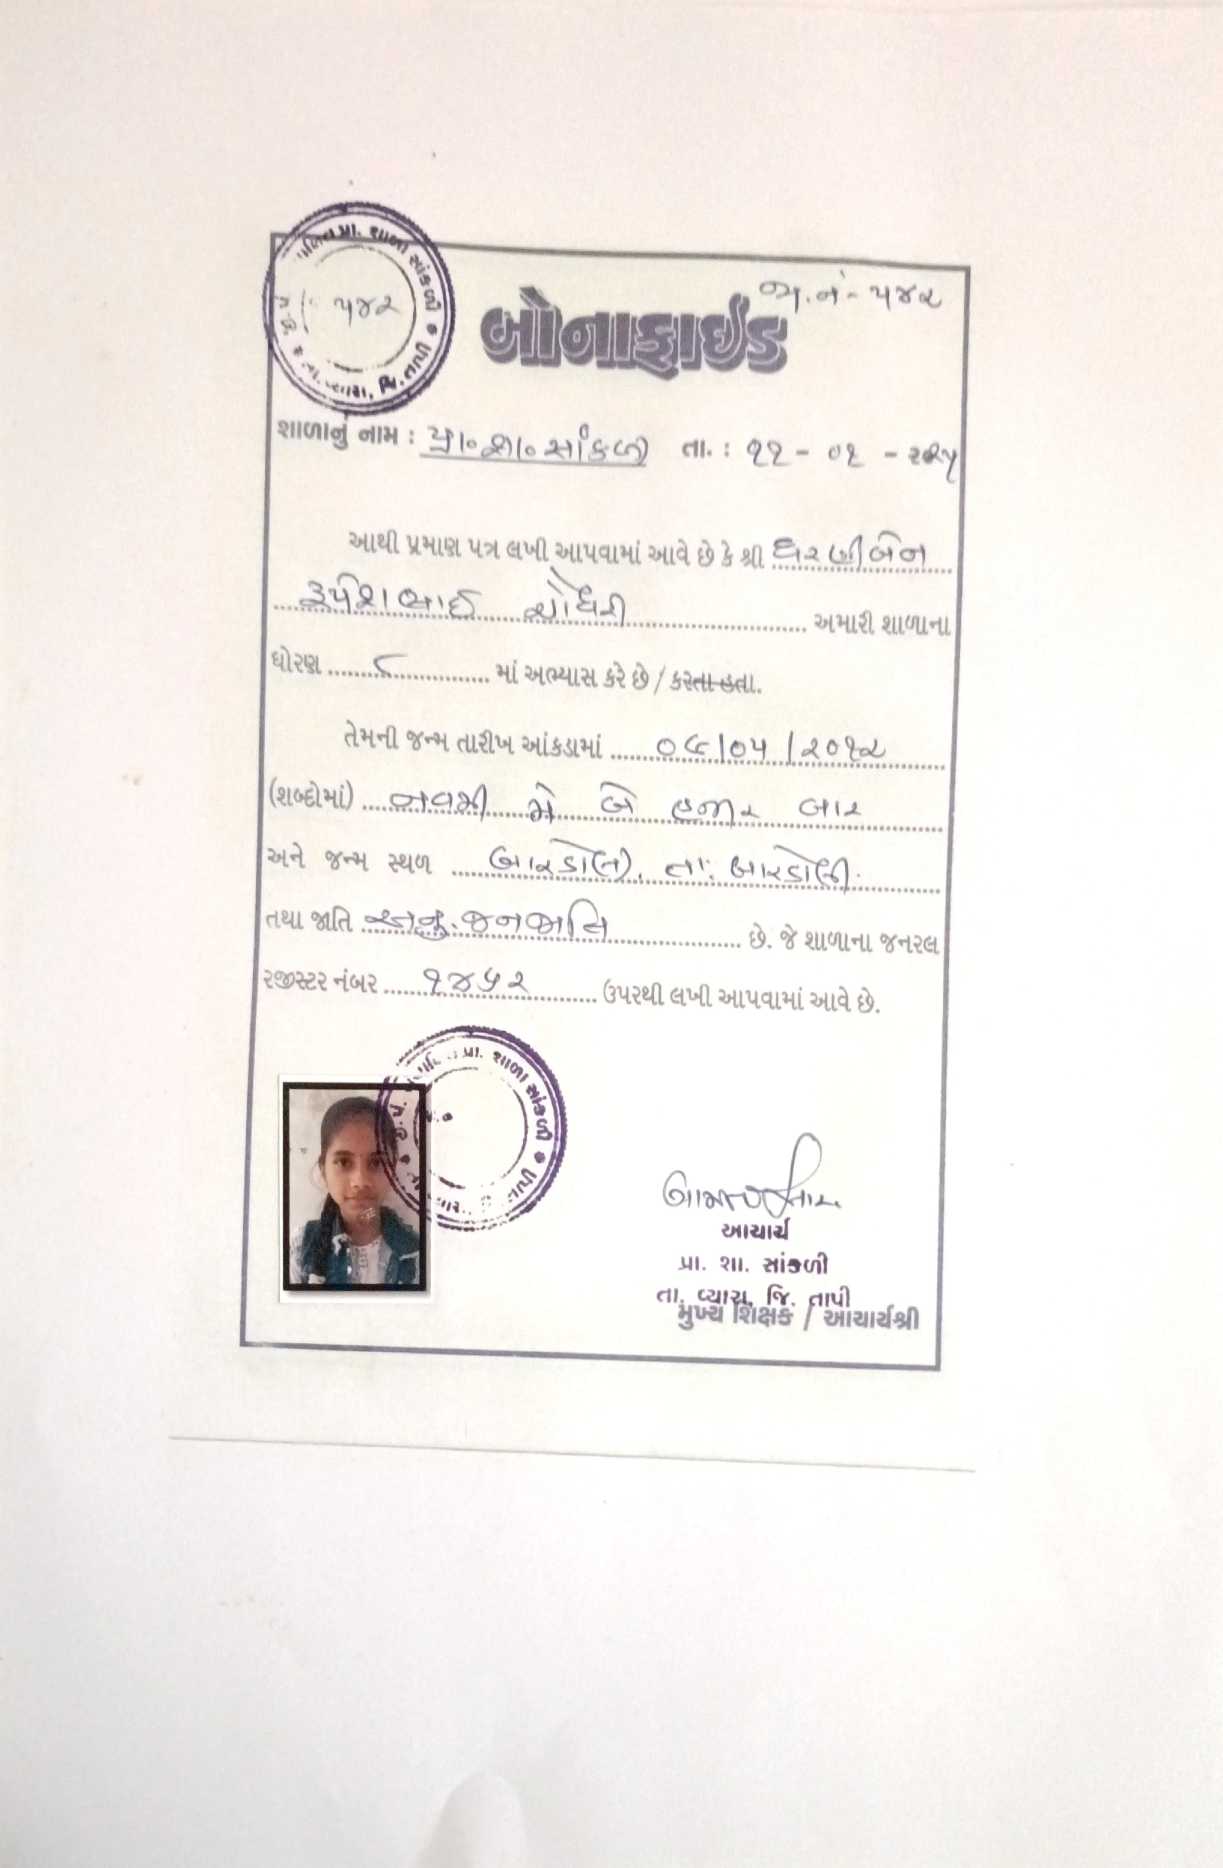 જા.નં - ૫૪૨
પ્રા. શાળા સાંકળી
૫૪૨
તા. વ્યારા, જિ. તાપી
બોનાફાઈડ
શાળાનું નામ : પ્રા૦ શા૦ સાંકળી તા. : ૧૧ - ૦૧ - ૨૦૨૫
આથી પ્રમાણ પત્ર લખી આપવામાં આવે છે કે શ્રી ધરણીબેન
રૂપેશભાઈ ચૌધરી અમારી શાળાના
ધોરણ ૮ માં અભ્યાસ કરે છે / કરતા હતા.
તેમની જન્મ તારીખ આંકડામાં ૦૯/૦૫/૨૦૧૨
(શબ્દોમાં) નવમી મે બે હજાર બાર
અને જન્મ સ્થળ બારડોલી. તા: બારડોલી.
તથા જાતિ અનુ. જનજાતિ છે. જે શાળાના જનરલ
રજીસ્ટર નંબર ૧૪૫૨ ઉપરથી લખી આપવામાં આવે છે.
પ્રા. શાળા સાંકળી
આચાર્ય
પ્રા. શા. સાંકળી
તા. વ્યારા, જિ. તાપી
મુખ્ય શિક્ષક / આચાર્યશ્રી